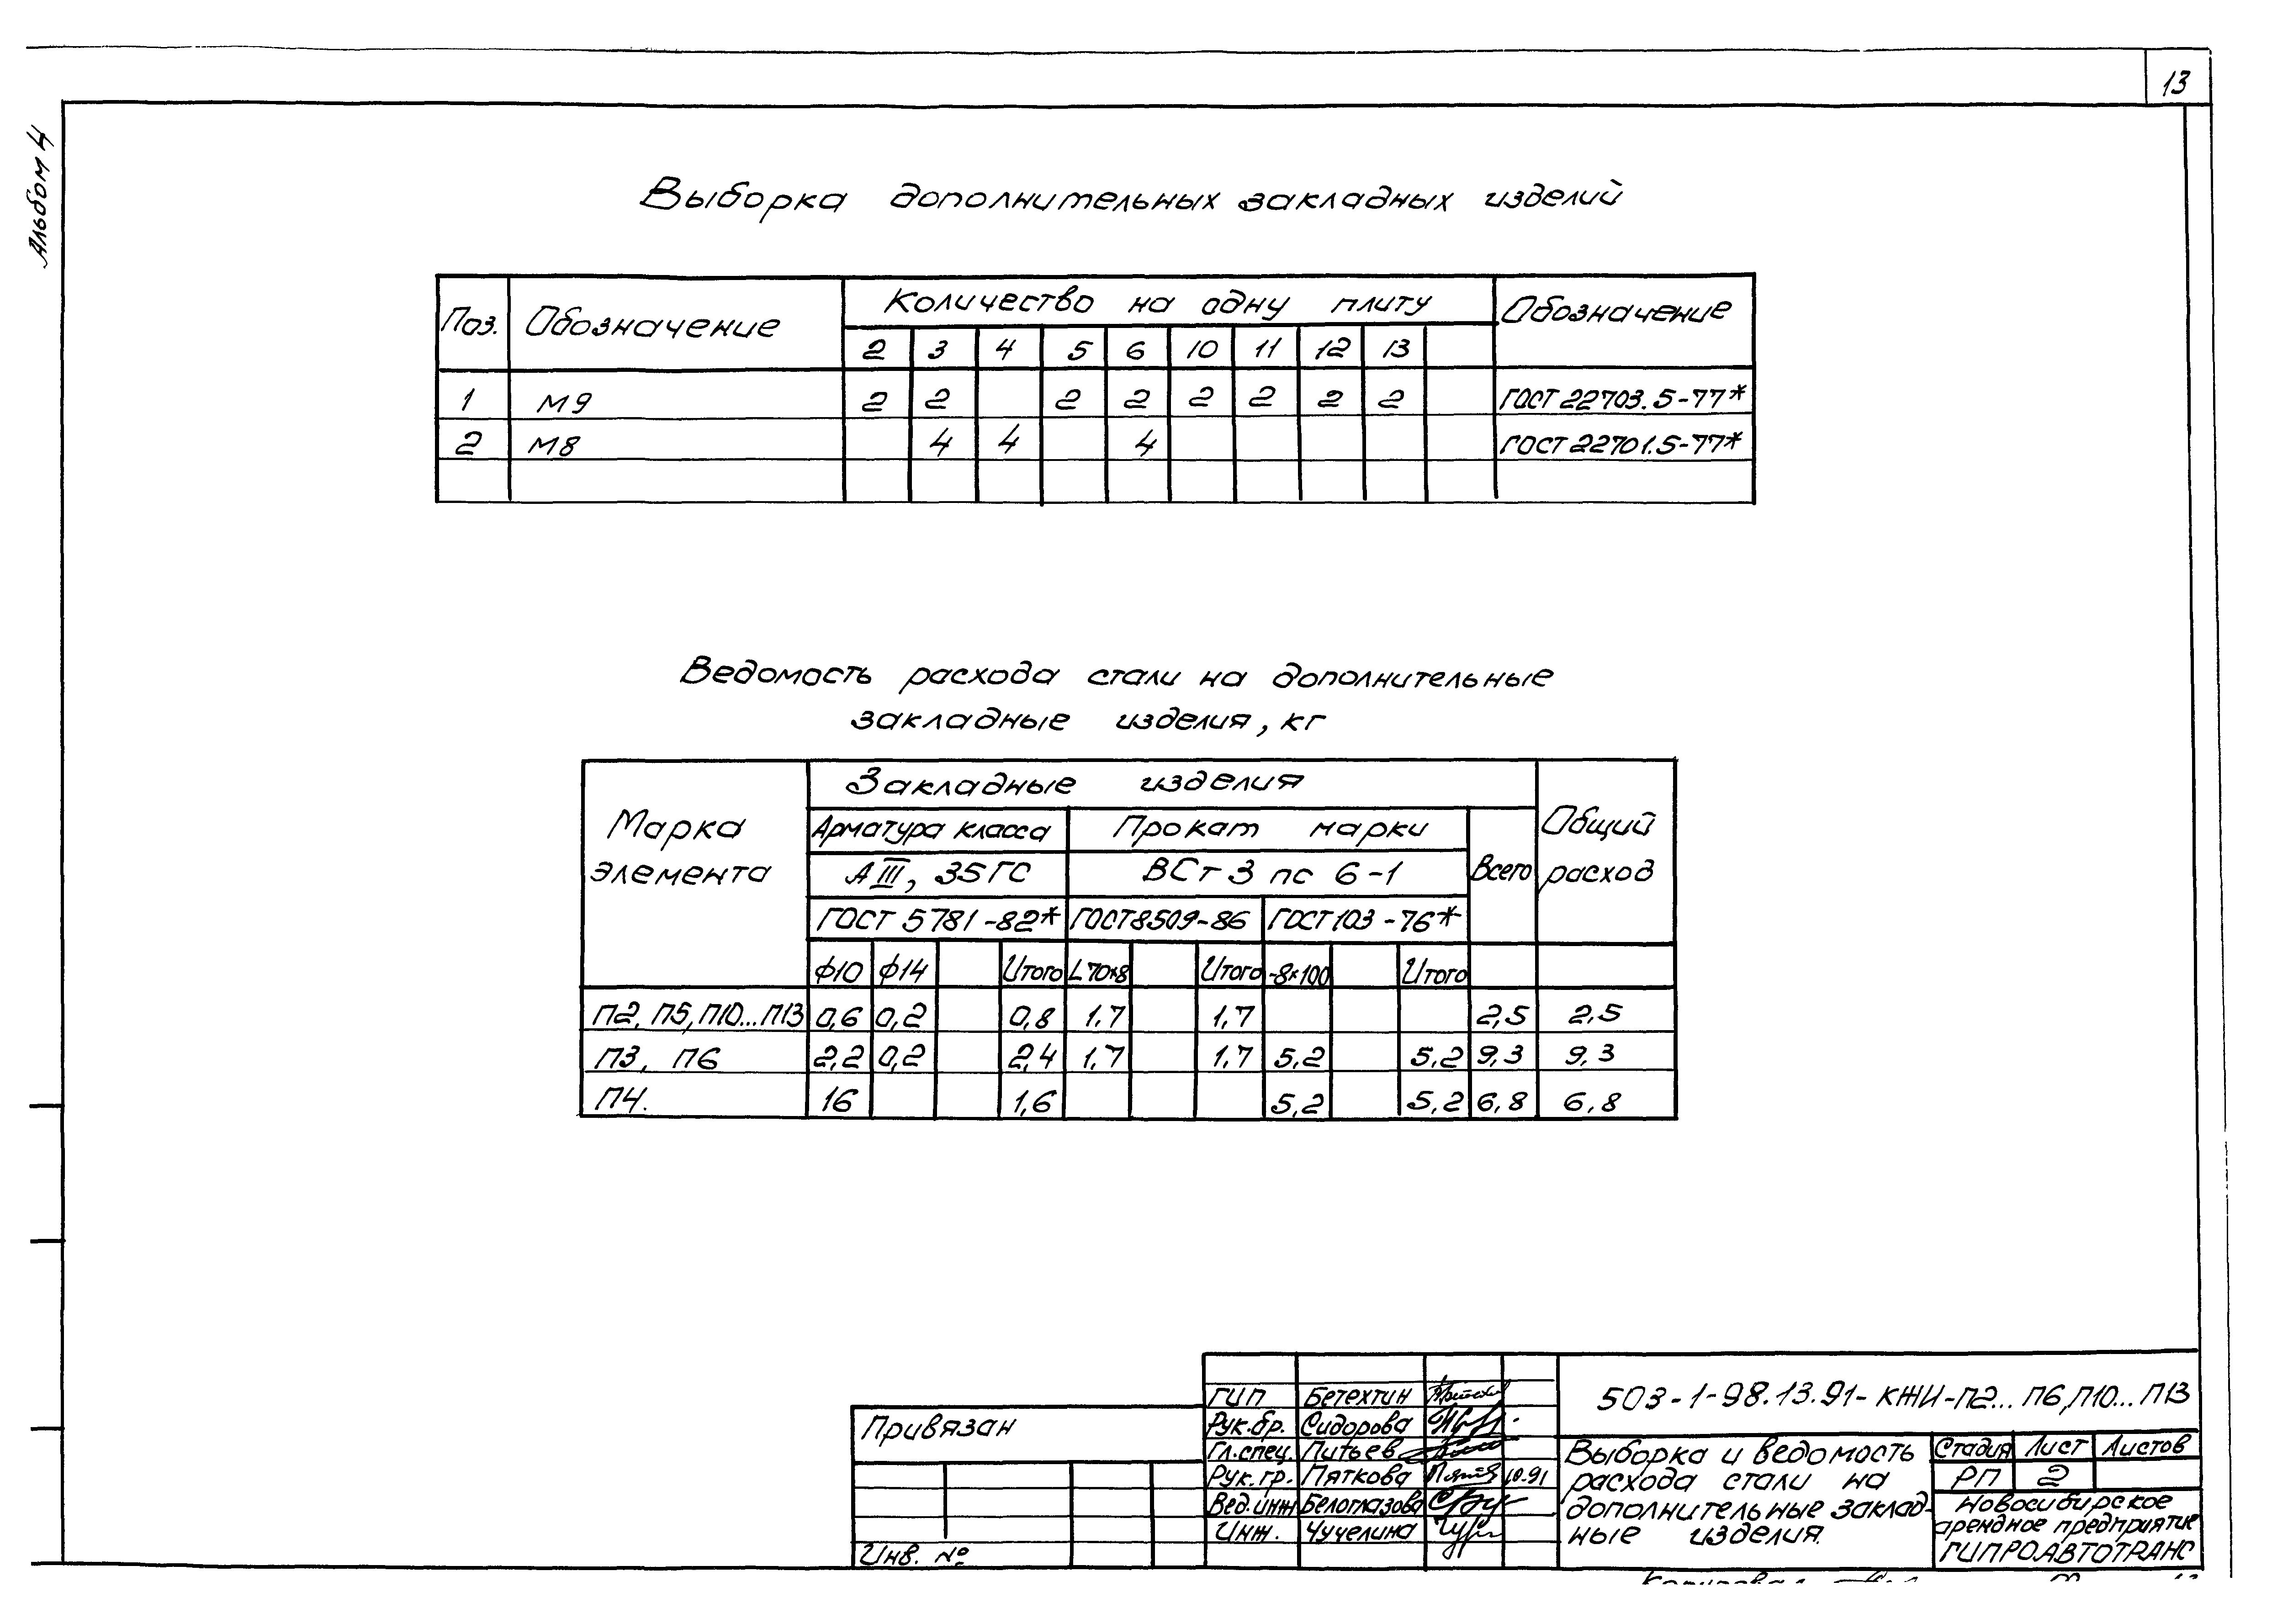 13
Альбом 4
Выборка дополнительных закладных изделий
Поз. Обозначение Количество на одну плиту Обозначение
2 3 4 5 6 10 11 12 13
1 М9 2 2 2 2 2 2 2 2 ГОСТ 22703.5-77*
2 М8 4 4 4 ГОСТ 22701.5-77*
Ведомость расхода стали на дополнительные
закладные изделия, кг
Марка элемента Закладные изделия Общий расход
Арматура класса Прокат марки Всего
АIII, 35ГС ВСт3 пс 6-1
ГОСТ 5781-82* ГОСТ 8509-86 ГОСТ 103-76*
ф10 ф14 Итого L70×8 Итого -8×100 Итого
П2, П5, П10...П13 0,6 0,2 0,8 1,7 1,7 2,5 2,5
П3, П6 2,2 0,2 2,4 1,7 1,7 5,2 5,2 9,3 9,3
П4. 16 1,6 5,2 5,2 6,8 6,8
Привязан
Инв. №
ГИП Бетехтин
Рук.бр. Сидорова
Гл.спец. Питьев
Рук.гр. Пяткова 10.91
Вед.инж Белоглазова
Инж. Чучелина
503-1-98.13.91-КЖИ-П2...П6,П10...П13
Выборка и ведомость
расхода стали на
дополнительные заклад-
ные изделия.
Стадия Лист Листов
РП 2
Новосибирское
арендное предприятие
ГИПРОАВТОТРАНС